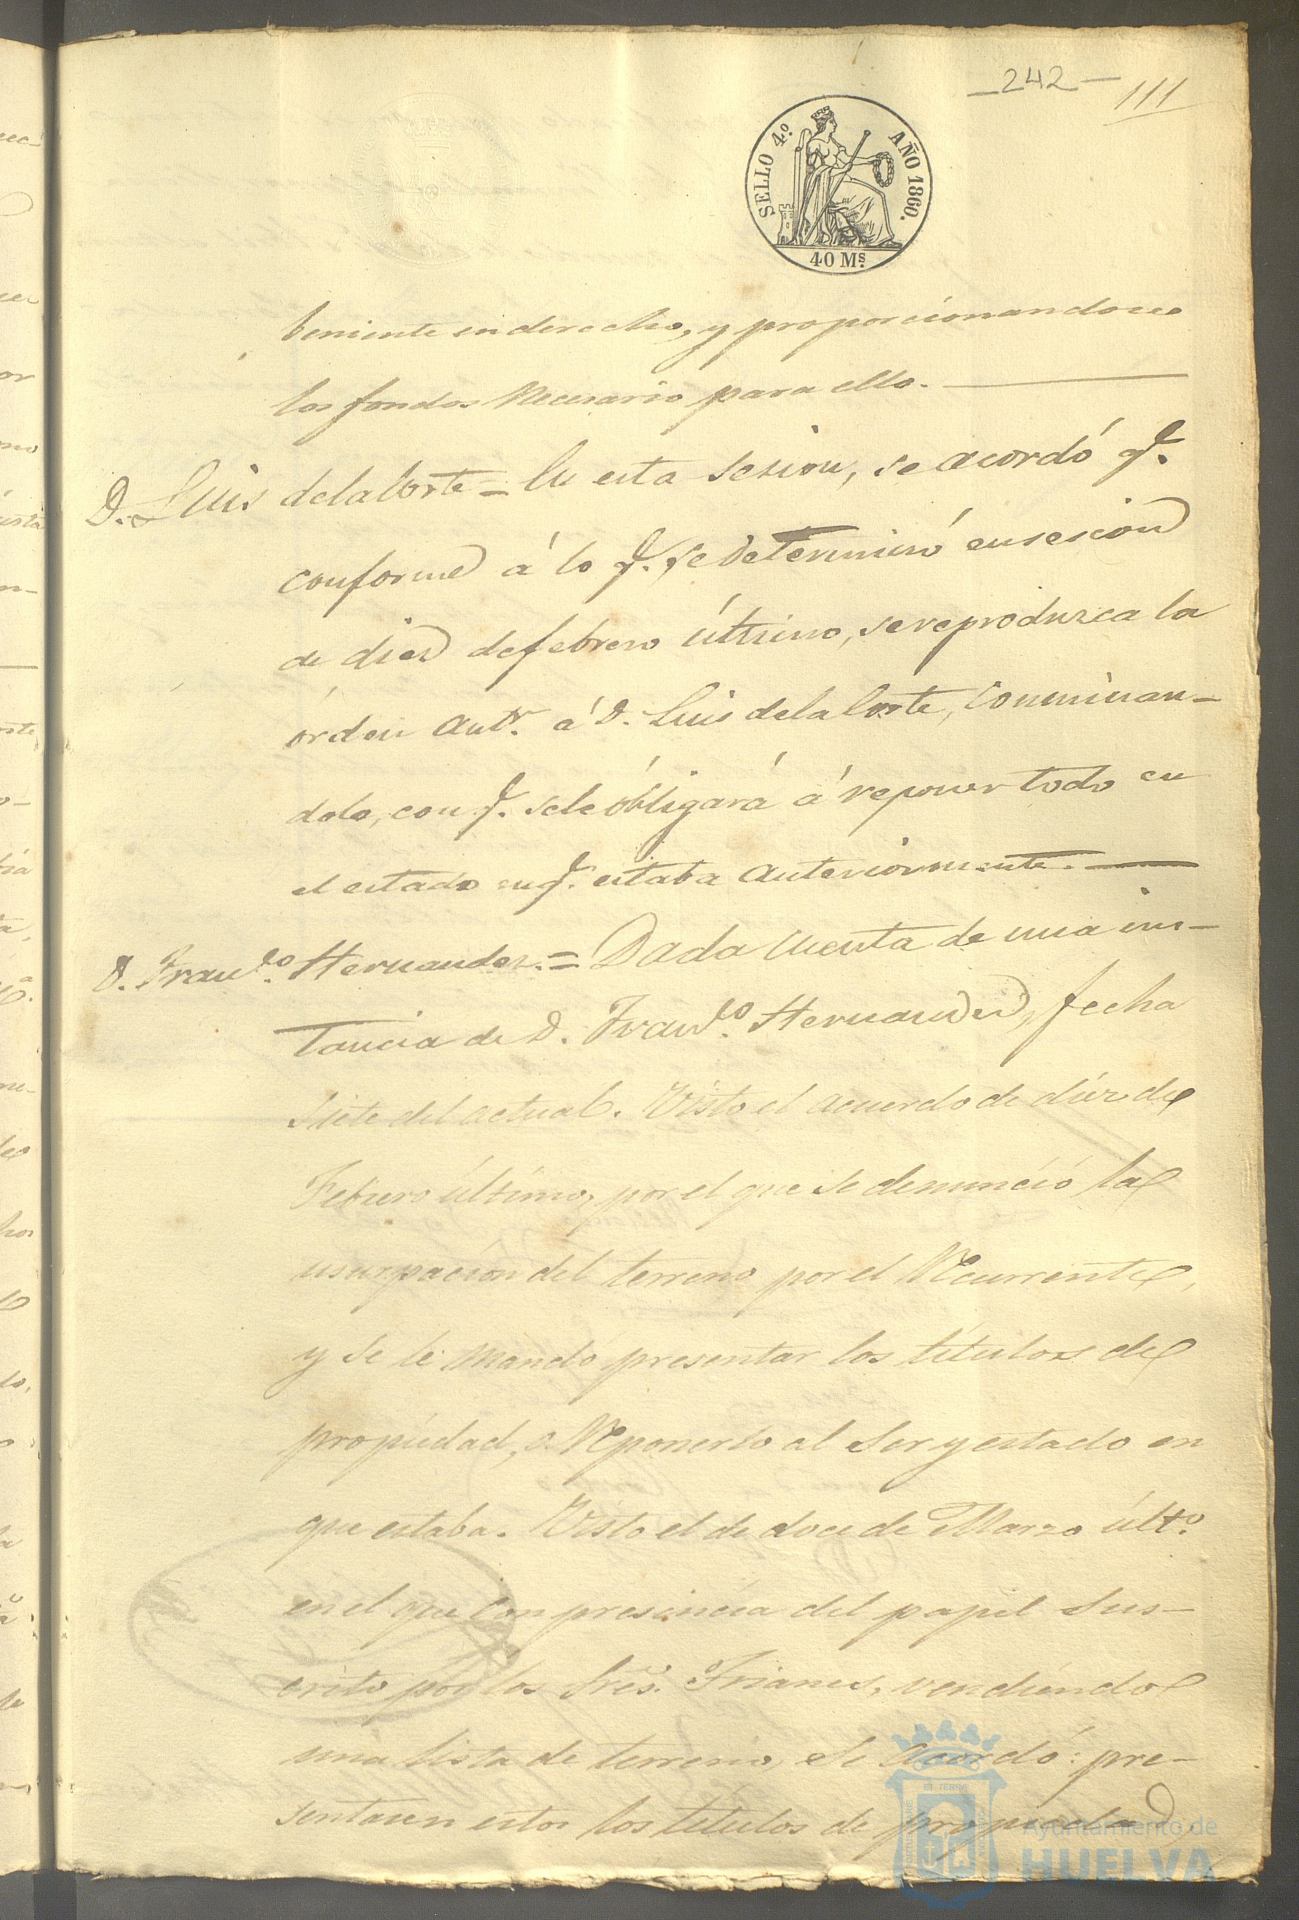 242
111
SELLO 4.º AÑO 1860.
40 Ms.
beniente en derecho, y proporcionandose
los fondos Necesario para ello.
D. Luis de la Corte = En esta sesion, se acordó q.e
conforme á lo q.e se determinó en sesion
de diez de febrero último, se reproduzca la
órden ant.r á D. Luis de la Corte, conminan-
dolo, con q.e se le óbligará á reponer todo en
el estado en q.e estaba anteriormente.
D. Fran.co Hernandez. = Dada cuenta de una ins-
tancia de D. Fran.co Hernandez, fecha
siete del actual. Visto el acuerdo de diez de
Febrero último, por el que se denunció la
usurpacion del terreno por el Recurrente,
y se le mandó presentar los títulos de
propiedad, o Reponerlo al ser y estado en
que estaba. Visto el de doce de Marzo últ.o
en el que con presencia del papel sus-
crito por los Sres. Trianes, vendiendo
una lista de terreno, se acordó: pre-
sentasen estos los títulos de propiedad,
Ayuntamiento de
HUELVA